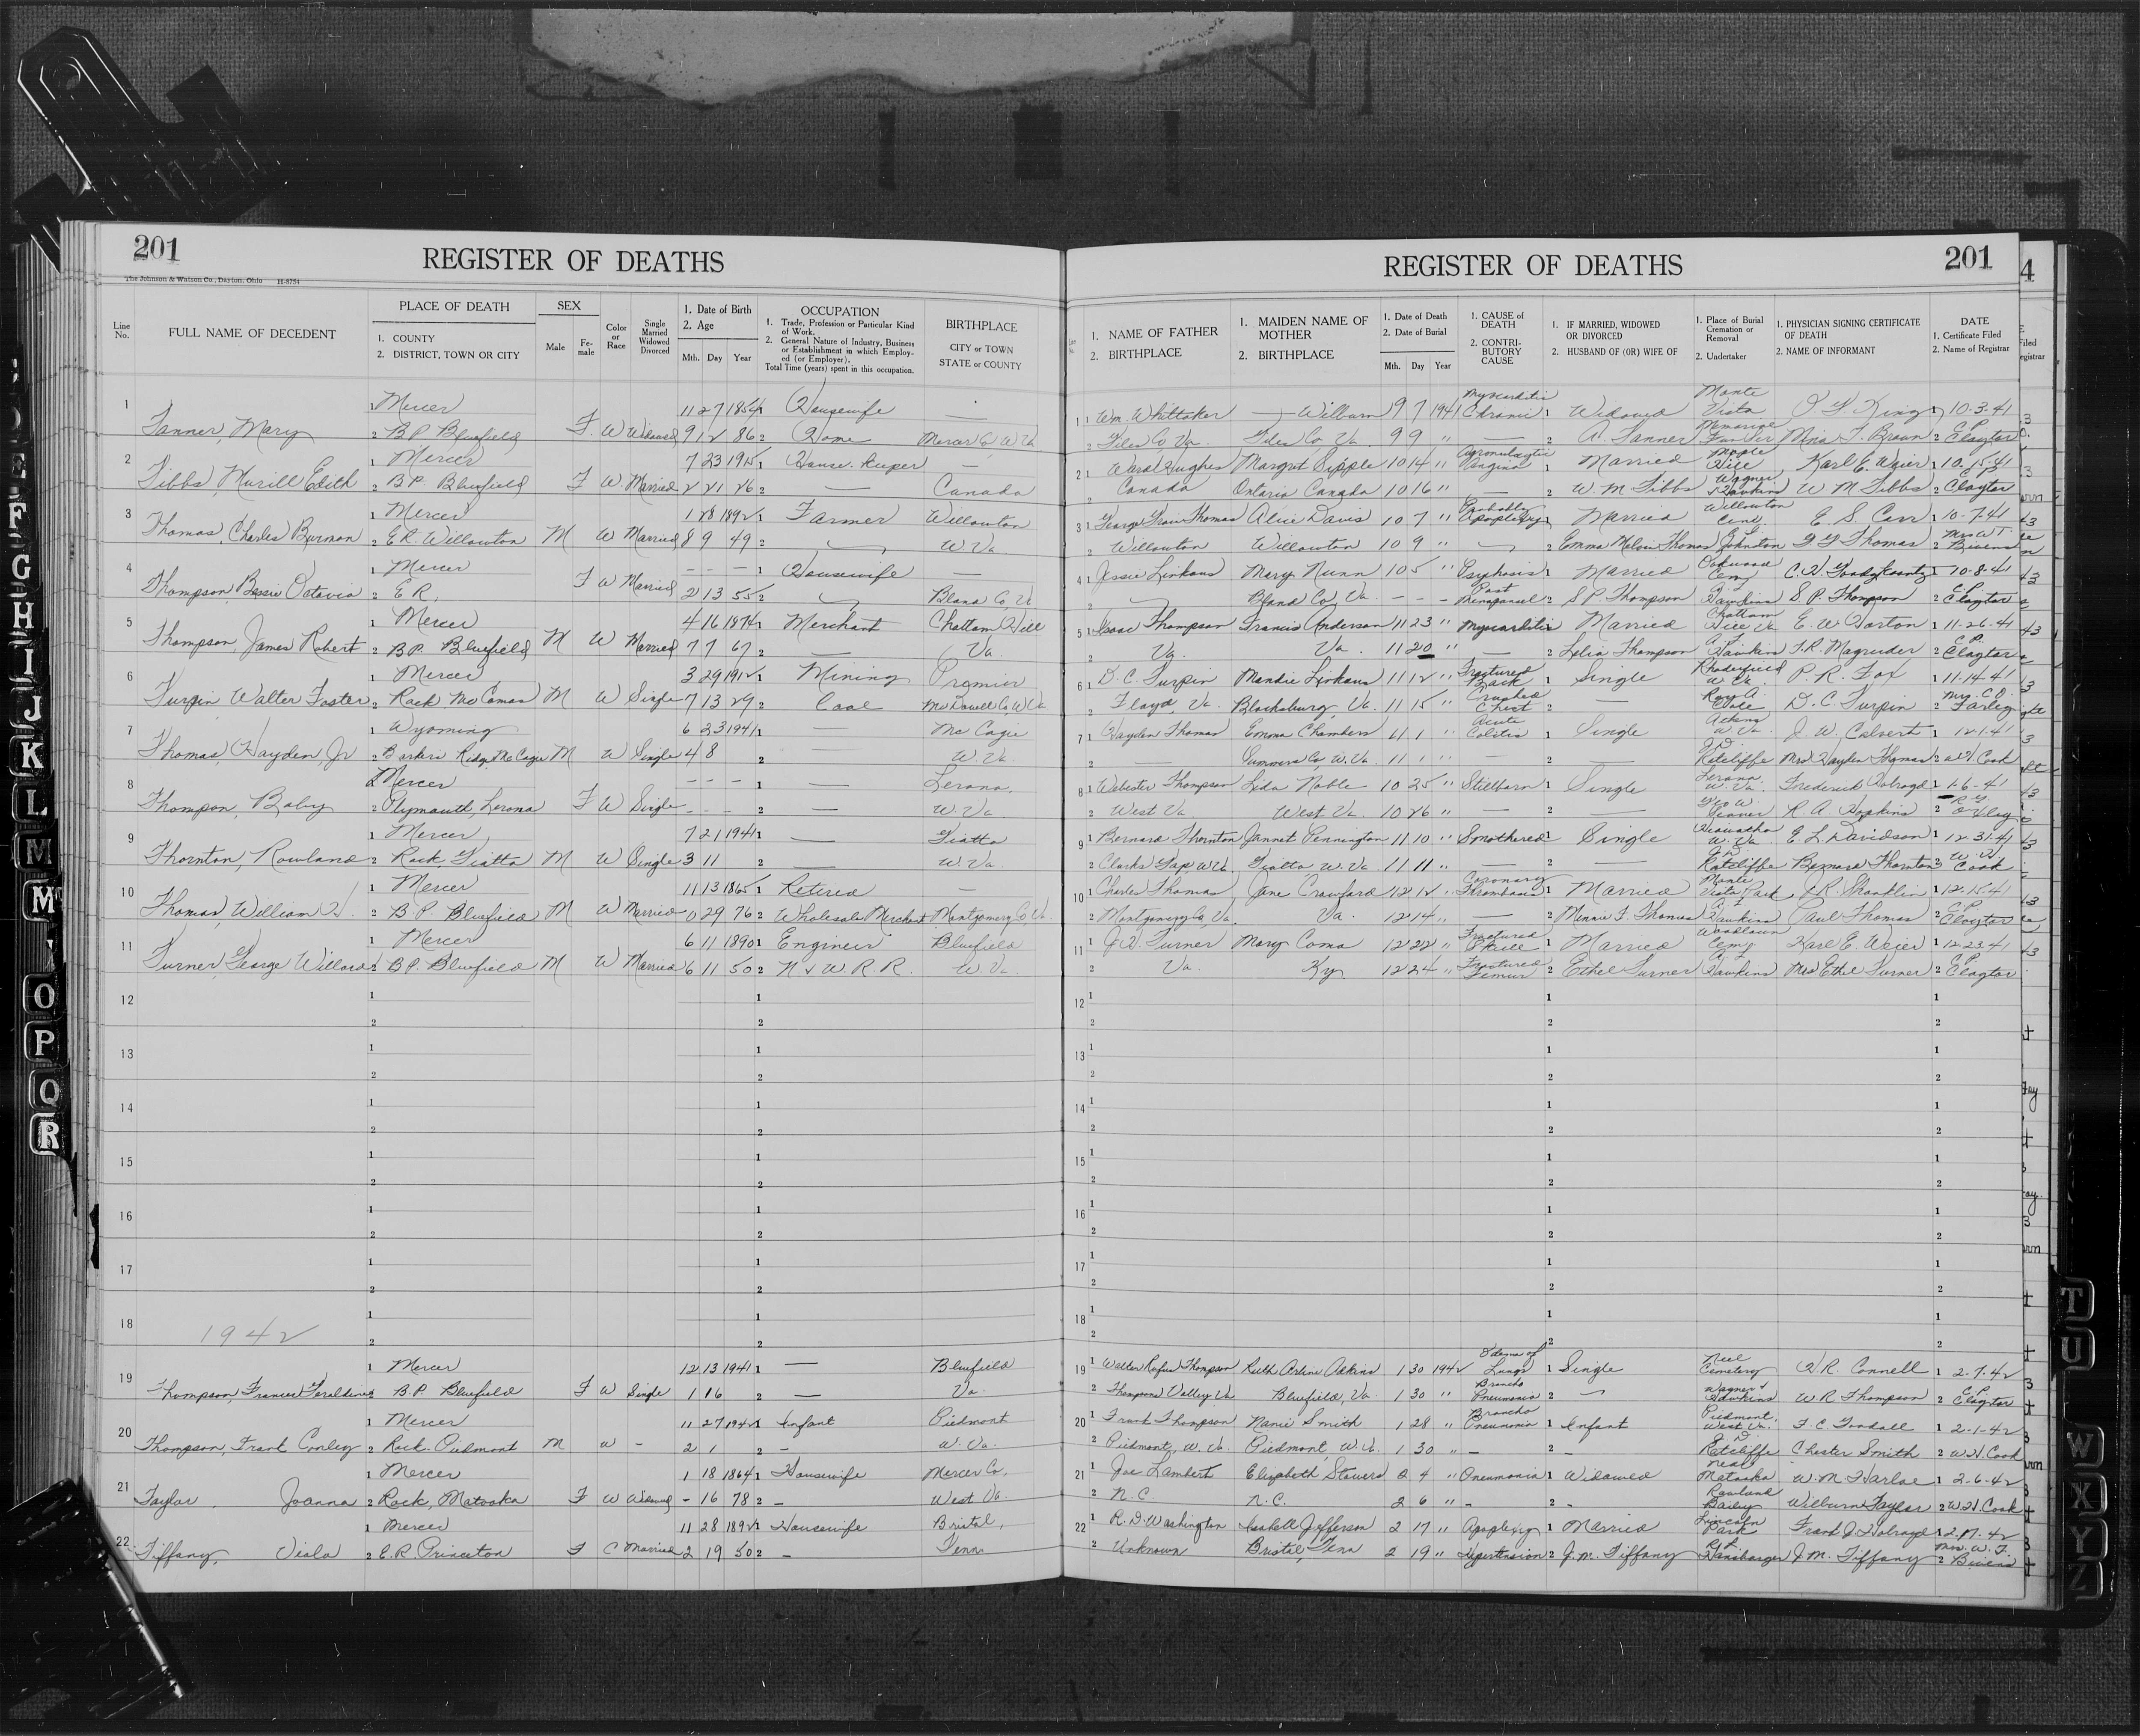 201
REGISTER OF DEATHS
The Johnson & Watson Co., Dayton, Ohio H-8754
Line No.
FULL NAME OF DECEDENT
PLACE OF DEATH
1. COUNTY
2. DISTRICT, TOWN OR CITY
SEX
Male
Female
Color or Race
Single Married Widowed Divorced
1. Date of Birth
2. Age
Mth. Day Year
OCCUPATION
1. Trade, Profession or Particular Kind of Work.
2. General Nature of Industry, Business or Establishment in which Employed (or Employer).
Total Time (years) spent in this occupation.
BIRTHPLACE
CITY or TOWN
STATE or COUNTY
1 Mercer 11 27 1854 1 Housewife —
1 Tanner, Mary 2 B.P. Bluefield F. W Widowed 9 12 86 2 Home Mercer Co, W. Va
1 Mercer 7 23 1915 1 House-keeper —
2 Tibbs, Murill Edith 2 B.P. Bluefield F W. Married 2 21 26 2 — Canada
1 Mercer 1 28 1892 1 Farmer Willowton
3 Thomas, Charles Burman 2 E.R. Willowton M W Married 8 9 49 2 W. Va
1 Mercer - - - 1 Housewife —
4 Thompson Bessie Octavia 2 E.R. F W Married 2 13 55 2 Bland Co, Va
1 Mercer 4 16 1874 1 Merchant Chattam Hill
5 Thompson, James Robert 2 B.P. Bluefield M W Married 7 7 67 2 — Va
1 Mercer 3 29 1912 1 Mining Premier
6 Turpin Walter Foster 2 Rock McComas M W Single 7 13 29 2 Coal McDowell Co, W Va
1 Wyoming 6 23 1941 1 —
7 Thomas, Hayden, Jr 2 Barkers Ridge M W Single 4 8 2 — W. Va.
1 Mercer - - - 1 — Lerona,
8 Thompson, Baby 2 Plymouth, Lerona F W Single - - - 2 — W. Va
1 Mercer 7 21 1941 1 — Giatto
9 Thornton, Rowland 2 Rock, Giatto M W Single 3 11 2 — W. Va
1 Mercer 11 13 1865 1 Retired —
10 Thomas, William H. 2 B.P. Bluefield M W Married 0 29 76 2 Wholesale Merchant Montgomery Co, Va
1 Mercer 6 11 1890 1 Engineer Bluefield
11 Turner, George Willard 2 B.P. Bluefield M W Married 6 11 50 2 N & W. R.R. W. Va
12 1 1
2 2
13 1 1
2 2
14 1 1
2 2
15 1 1
2 2
16 1 1
2 2
17 1 1
2 2
18 1 1
1942 2 2
1 Mercer 12 13 1941 1 — Bluefield
19 Thompson, Frances Geraldine 2 B.P. Bluefield F W Single 1 16 2 — Va.
1 Mercer 11 27 1941 Infant Piedmont
20 Thompson, Frank Conley 2 Rock. Piedmont M W - 2 1 2 - W. Va.
1 Mercer 1 18 1864 1 Housewife Mercer Co,
21 Taylor, Joanna 2 Rock, Matoaka F W Widowed - 16 78 2 - West Va.
1 Mercer 11 28 1892 1 Housewife Bristol,
22 Tiffany, Viola 2 E.R. Princeton F C Married 2 19 50 2 - Tenn
REGISTER OF DEATHS
201
1. NAME OF FATHER
2. BIRTHPLACE
1. MAIDEN NAME OF MOTHER
2. BIRTHPLACE
1. Date of Death
2. Date of Burial
Mth. Day Year
1. CAUSE of DEATH
2. CONTRIBUTORY CAUSE
1. IF MARRIED, WIDOWED OR DIVORCED
2. HUSBAND OF (OR) WIFE OF
1. Place of Burial Cremation or Removal
2. Undertaker
1. PHYSICIAN SIGNING CERTIFICATE OF DEATH
2. NAME OF INFORMANT
DATE
1. Certificate Filed
2. Name of Registrar
1 1 Wm Whittaker — Wilburn 9 7 1941 Myocarditis Chronic 1 Widowed Monte Vista King 1 10-3-41
2 Giles Co, Va. Giles Co Va. 9 9 " — 2 A. Tanner Memorial Mina T. Brown 2 C.P. Claytor
2 1 Hughes Margret Sipple 10 14 " Agranulocytic Angina 1 Married Maple Hill Karl E. Weier 1 10-15-41
2 Canada Ontario Canada 10 16 " — 2 W. M Tibbs Wagner & Hawkins W M Tibbs 2 Claytor
3 1 George Thomas Alice Davis 10 7 " Probably Apoplexy 1 Married Willowton Cem. E. S. Carr 1 10-7-41
2 Willowton Willowton 10 9 " 2 Emma Thomas Johnston Thomas 2 Mrs W T. Bivens
4 1 Jessie Linkous Mary Nunn 10 5 " Psychosis 1 Married Oakwood Cem 1 10-8-41
2 Bland Co, Va. - - - Post Menopausal 2 S P. Thompson Hawkins S. P. Thompson 2 C.P. Claytor
5 1 Isaac Thompson Francis Anderson 11 23 " Myocarditis 1 Married Chattam Hill Va E. W Horton 1 11-26-41
2 Va. Va. 11 20 " — 2 Lelia Thompson Hawkins Magruder 2 C.P. Claytor
6 1 D. C. Turpin Mandie Linkous 11 12 " Fractured Back 1 Single W Va P. R. Fox 1 11-14-41
2 Floyd, Va. Blacksburg, Va. 11 15 " Crushed Chest 2 — Roy A. D. C. Turpin 2 Mrs. C.O. Farley
7 1 Hayden Thomas Emma Chambers 11 1 " Acute Colitis 1 Single W. Va. J. W. Calvert 1 12-1-41
2 — Summers Co, W. Va. 11 1 " — 2 — J.D. Ratcliffe Mrs Hayden Thomas 2 W.H. Cook
8 1 Webster Thompson Lida Noble 10 25 " Stillborn 1 Single Lerona W. Va. Frederick Holroyd 1 1-6-41
2 West Va West Va. 10 26 " — 2 — Geo W. R. A. Hopkins 2
9 1 Bernard Thornton Jannet Pennington 11 10 " Smothered 1 Single Hiawatha W. Va E. L. Davidson 1 12-31-41
2 Clarks Gap W Va. Giatto W. Va 11 11 " — 2 — J.D. Ratcliffe Bernard Thornton 2 W.H. Cook
10 1 Charles Thomas Jane Crawford 12 12 " Coronary Thrombosis 1 Married Monte Vista Park Shanklin 1 12-15-41
2 Montgomery Co, Va. Va. 12 14 " — 2 Minnie F. Thomas Hawkins Paul Thomas 2 C.P. Claytor
11 1 Turner Mary Coma 12 22 " Fractured Skull 1 Married Woodlawn Cem. Karl E. Weier 1 12-23-41
2 Va. Ky. 12 24 " Fractured Femur 2 Ethel Turner Hawkins Mrs Ethel Turner 2 C.P. Claytor
12 1 1 1
2 2 2
13 1 1 1
2 2 2
14 1 1 1
2 2 2
15 1 1 1
2 2 2
16 1 1 1
2 2 2
17 1 1 1
2 2 2
18 1 1 1
2 2 2
19 1 Walter Rufus Thompson Ruth Arlene Adkins 1 30 1942 Edema of Lungs 1 Single Neel Cemetery H.R. Connell 1 2-7-42
2 Thompson Valley Va Bluefield, Va. 1 30 " Broncho Pneumonia 2 Wagner & Hawkins W R Thompson 2 C.P. Claytor
20 1 Frank Thompson Nanie Smith 1 28 " Broncho Pneumonia 1 Infant Piedmont, West Va. F. C Goodall 1 2-1-42
2 Piedmont, W. Va. Piedmont, W. Va. 1 30 " - 2 - J.D. Ratcliffe Chester Smith 2 W.H. Cook
21 1 Joe Lambert Elizabeth Stowers 2 4 " Pneumonia 1 Widowed Near Matoaka W. M Harloe 1 2-6-42
2 N.C. N.C. 2 6 " - 2 - Rowland Bailey Wilburn Taylor 2 W.H. Cook
22 1 R. D. Washington Isabell Jefferson 2 17 " Apoplexy 1 Married Lincoln Park Frank J. Holroyd 1 2-17-42
2 Unknown Bristol, Tenn 2 19 " Hypertension 2 J. M. Tiffany Hansbarger J. M. Tiffany 2 Mrs. W. T. Bivens
4
F
G
H
I
J
K
L
M
Mc
O
P
Q
R
T
U
W
X
Y
Z